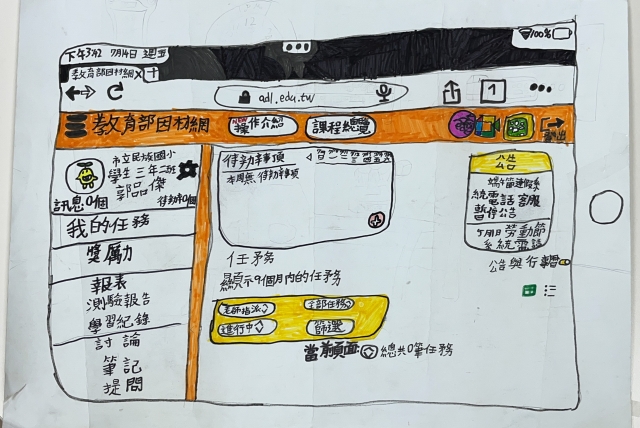 下午3:42 7月14日 週五
100%
教育部因材網 X +
adl.edu.tw
1
教育部因材網
NEW
操作介紹
課程總覽
登出
市立民族國小
學生 三年二班
郭品傑
訊息0個
待動0個
我的任務
獎勵
報表
測驗報告
學習紀錄
討論
筆記
提問
待動事項
本周無待動事項
任務
顯示9個月內的任務
老師指派
全部任務
進行中
篩選
當前頁面 總共0筆任務
公告
端午節連假系
統電話客服
暫停公告
5月1日勞動節
系統電話
公告與行事曆